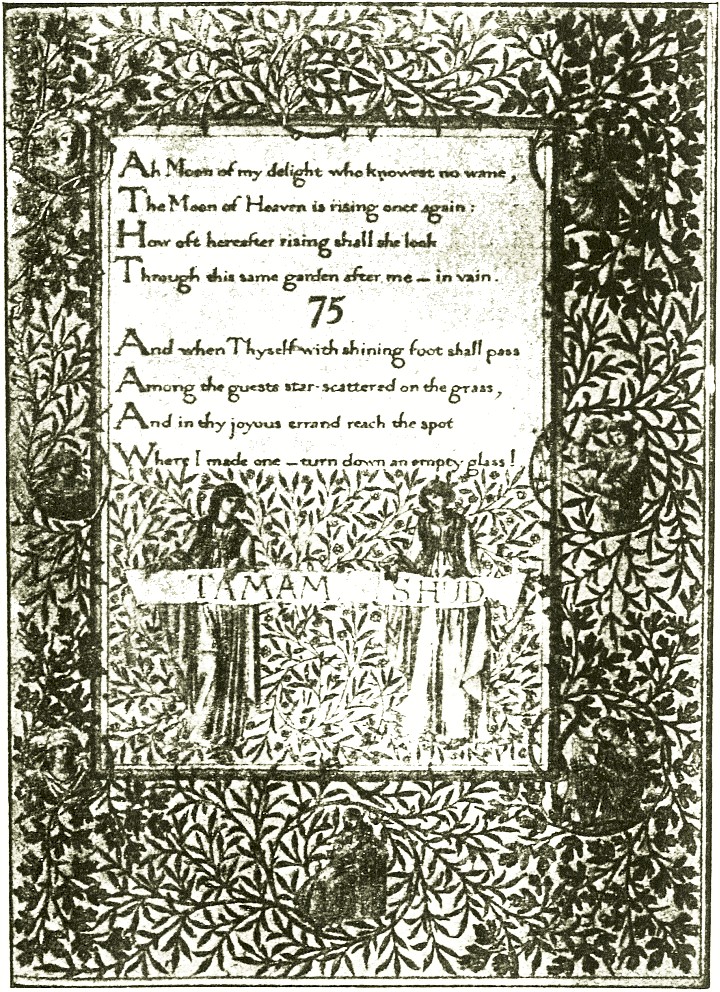 Ah Moon of my delight who knowest no wane,
The Moon of Heaven is rising once again:
How oft hereafter rising shall she look
Through this same garden after me — in vain.
75
And when Thyself with shining foot shall pass
Among the guests star-scattered on the grass,
And in thy joyous errand reach the spot
Where I made one — turn down an empty glass!
TAMAM SHUD